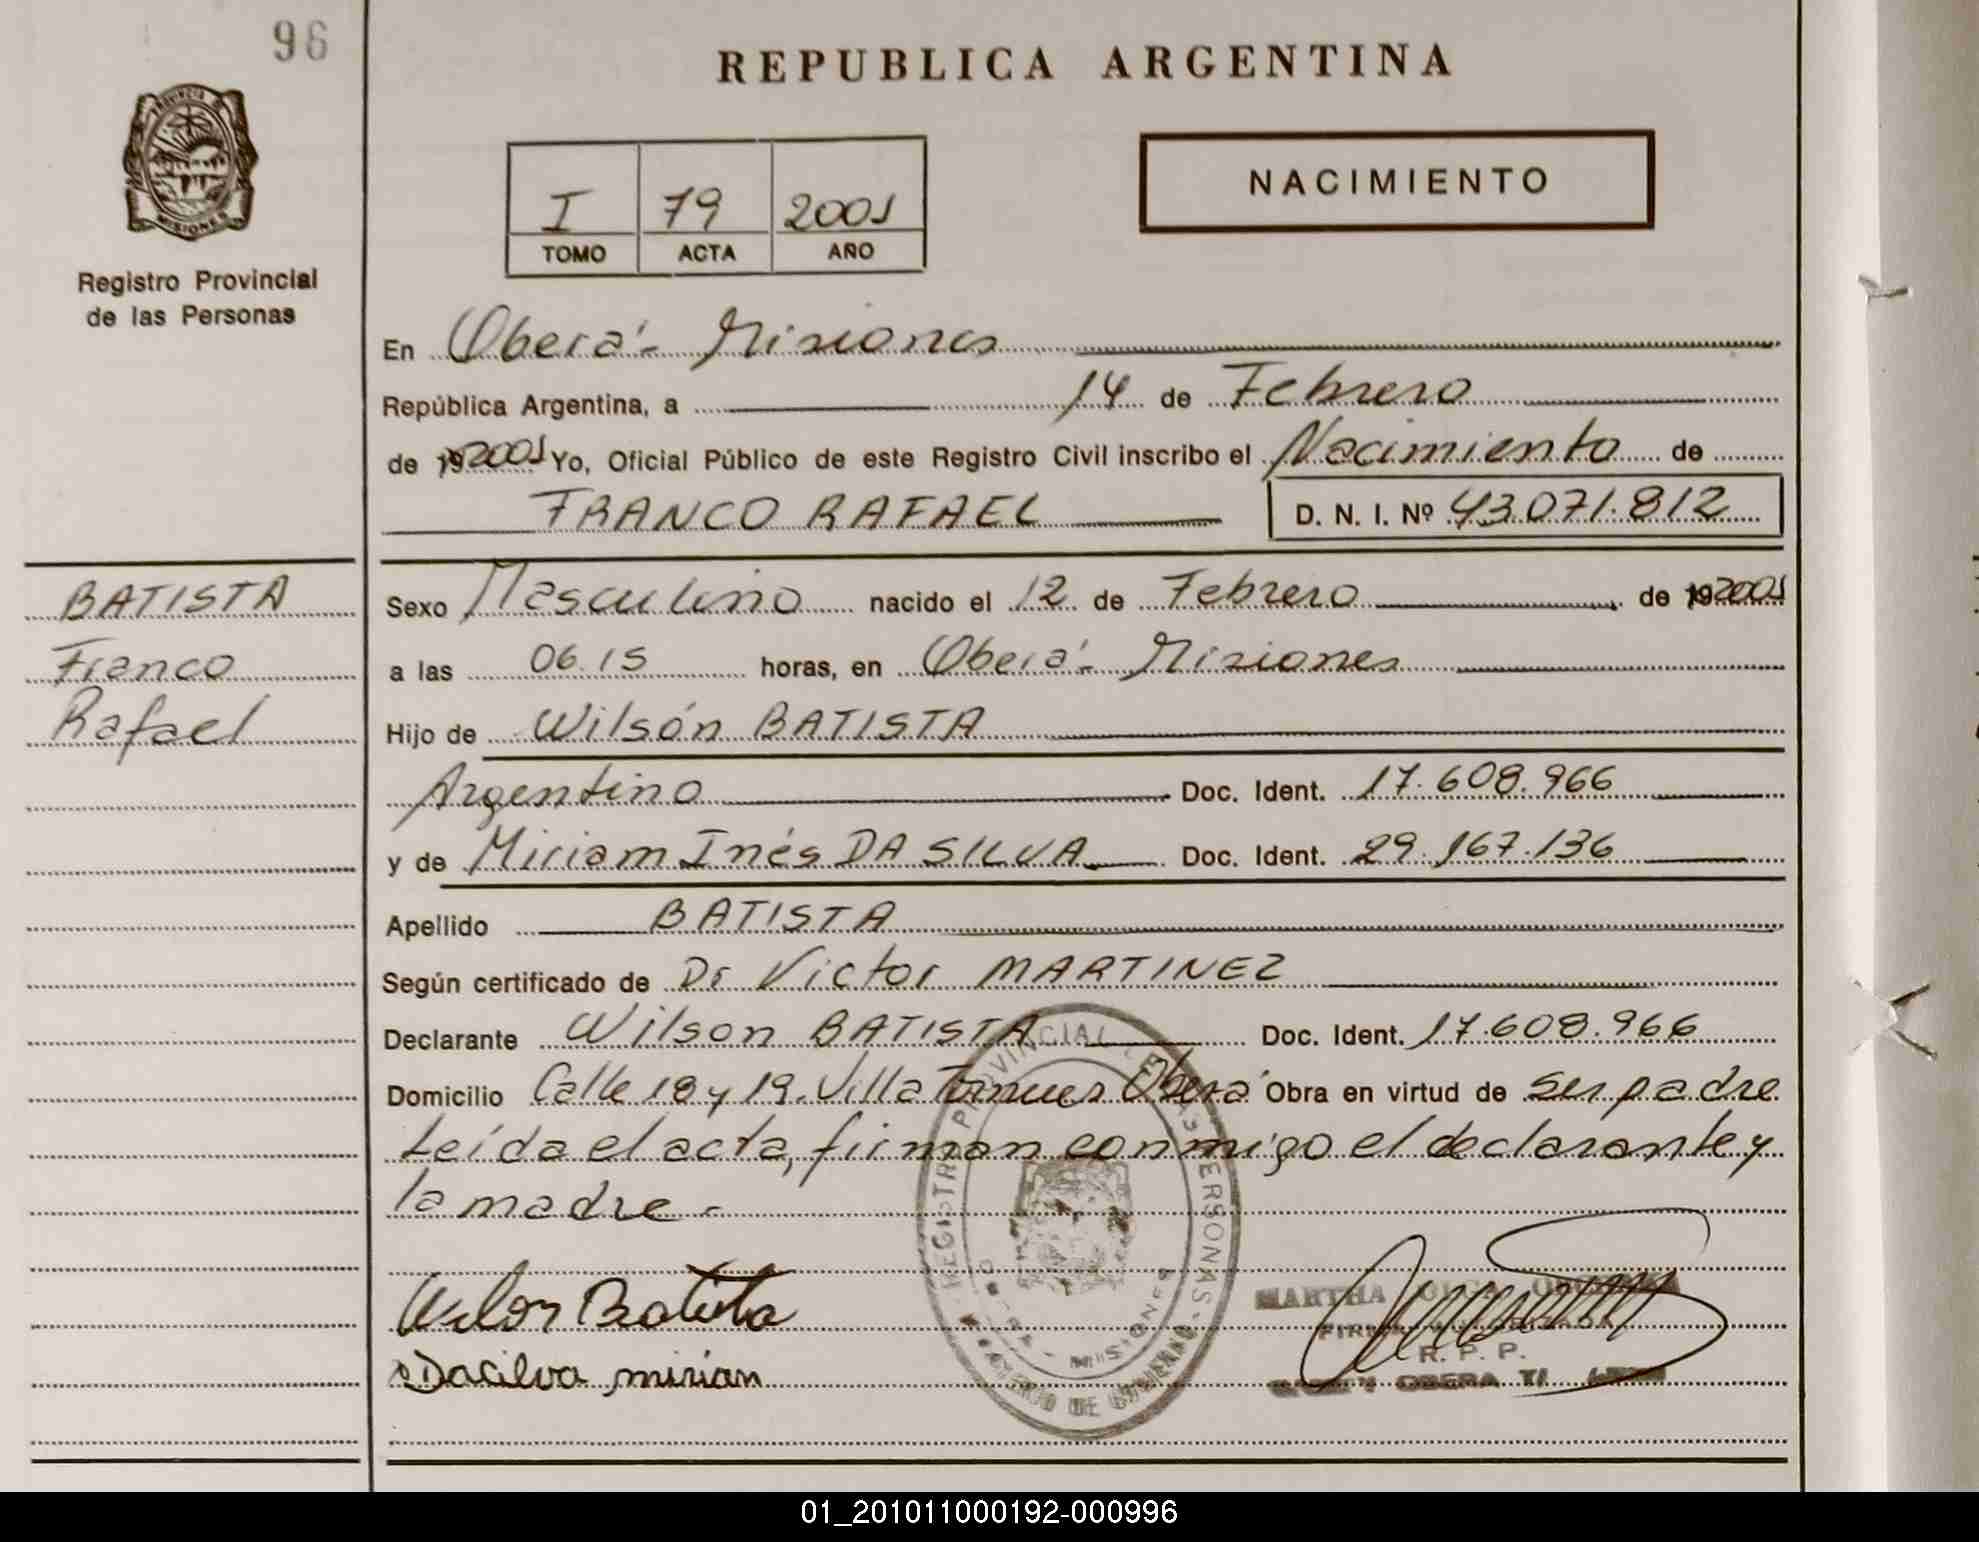 96
REPUBLICA ARGENTINA
PROVINCIA DE
MISIONES
Registro Provincial
de las Personas
I 79 2001
TOMO ACTA AÑO
NACIMIENTO
En Oberá - Misiones
República Argentina, a 14 de Febrero
de 192001 Yo, Oficial Público de este Registro Civil inscribo el Nacimiento de
FRANCO RAFAEL D. N. I. Nº 43.071.812
BATISTA
Franco
Rafael
Sexo Masculino nacido el 12 de Febrero de 192001
a las 06.15 horas, en Oberá - Misiones
Hijo de Wilsón BATISTA
Argentino Doc. Ident. 17.608.966
y de Miriam Inés DA SILVA Doc. Ident. 29.167.136
Apellido BATISTA
Según certificado de Dr Victor MARTINEZ
Declarante Wilson BATISTA Doc. Ident. 17.608.966
Domicilio Calle 18 y 19. Villa Oberá Obra en virtud de ser padre
Leída el acta, firman conmigo el declarante y
la madre -
Wilson Batista
Dacilva mirian
REGISTRO PROVINCIAL DE LAS PERSONAS
MISIONES
MINISTERIO DE GOBIERNO
MARTHA
R. P. P.
OBERA
01_201011000192-000996